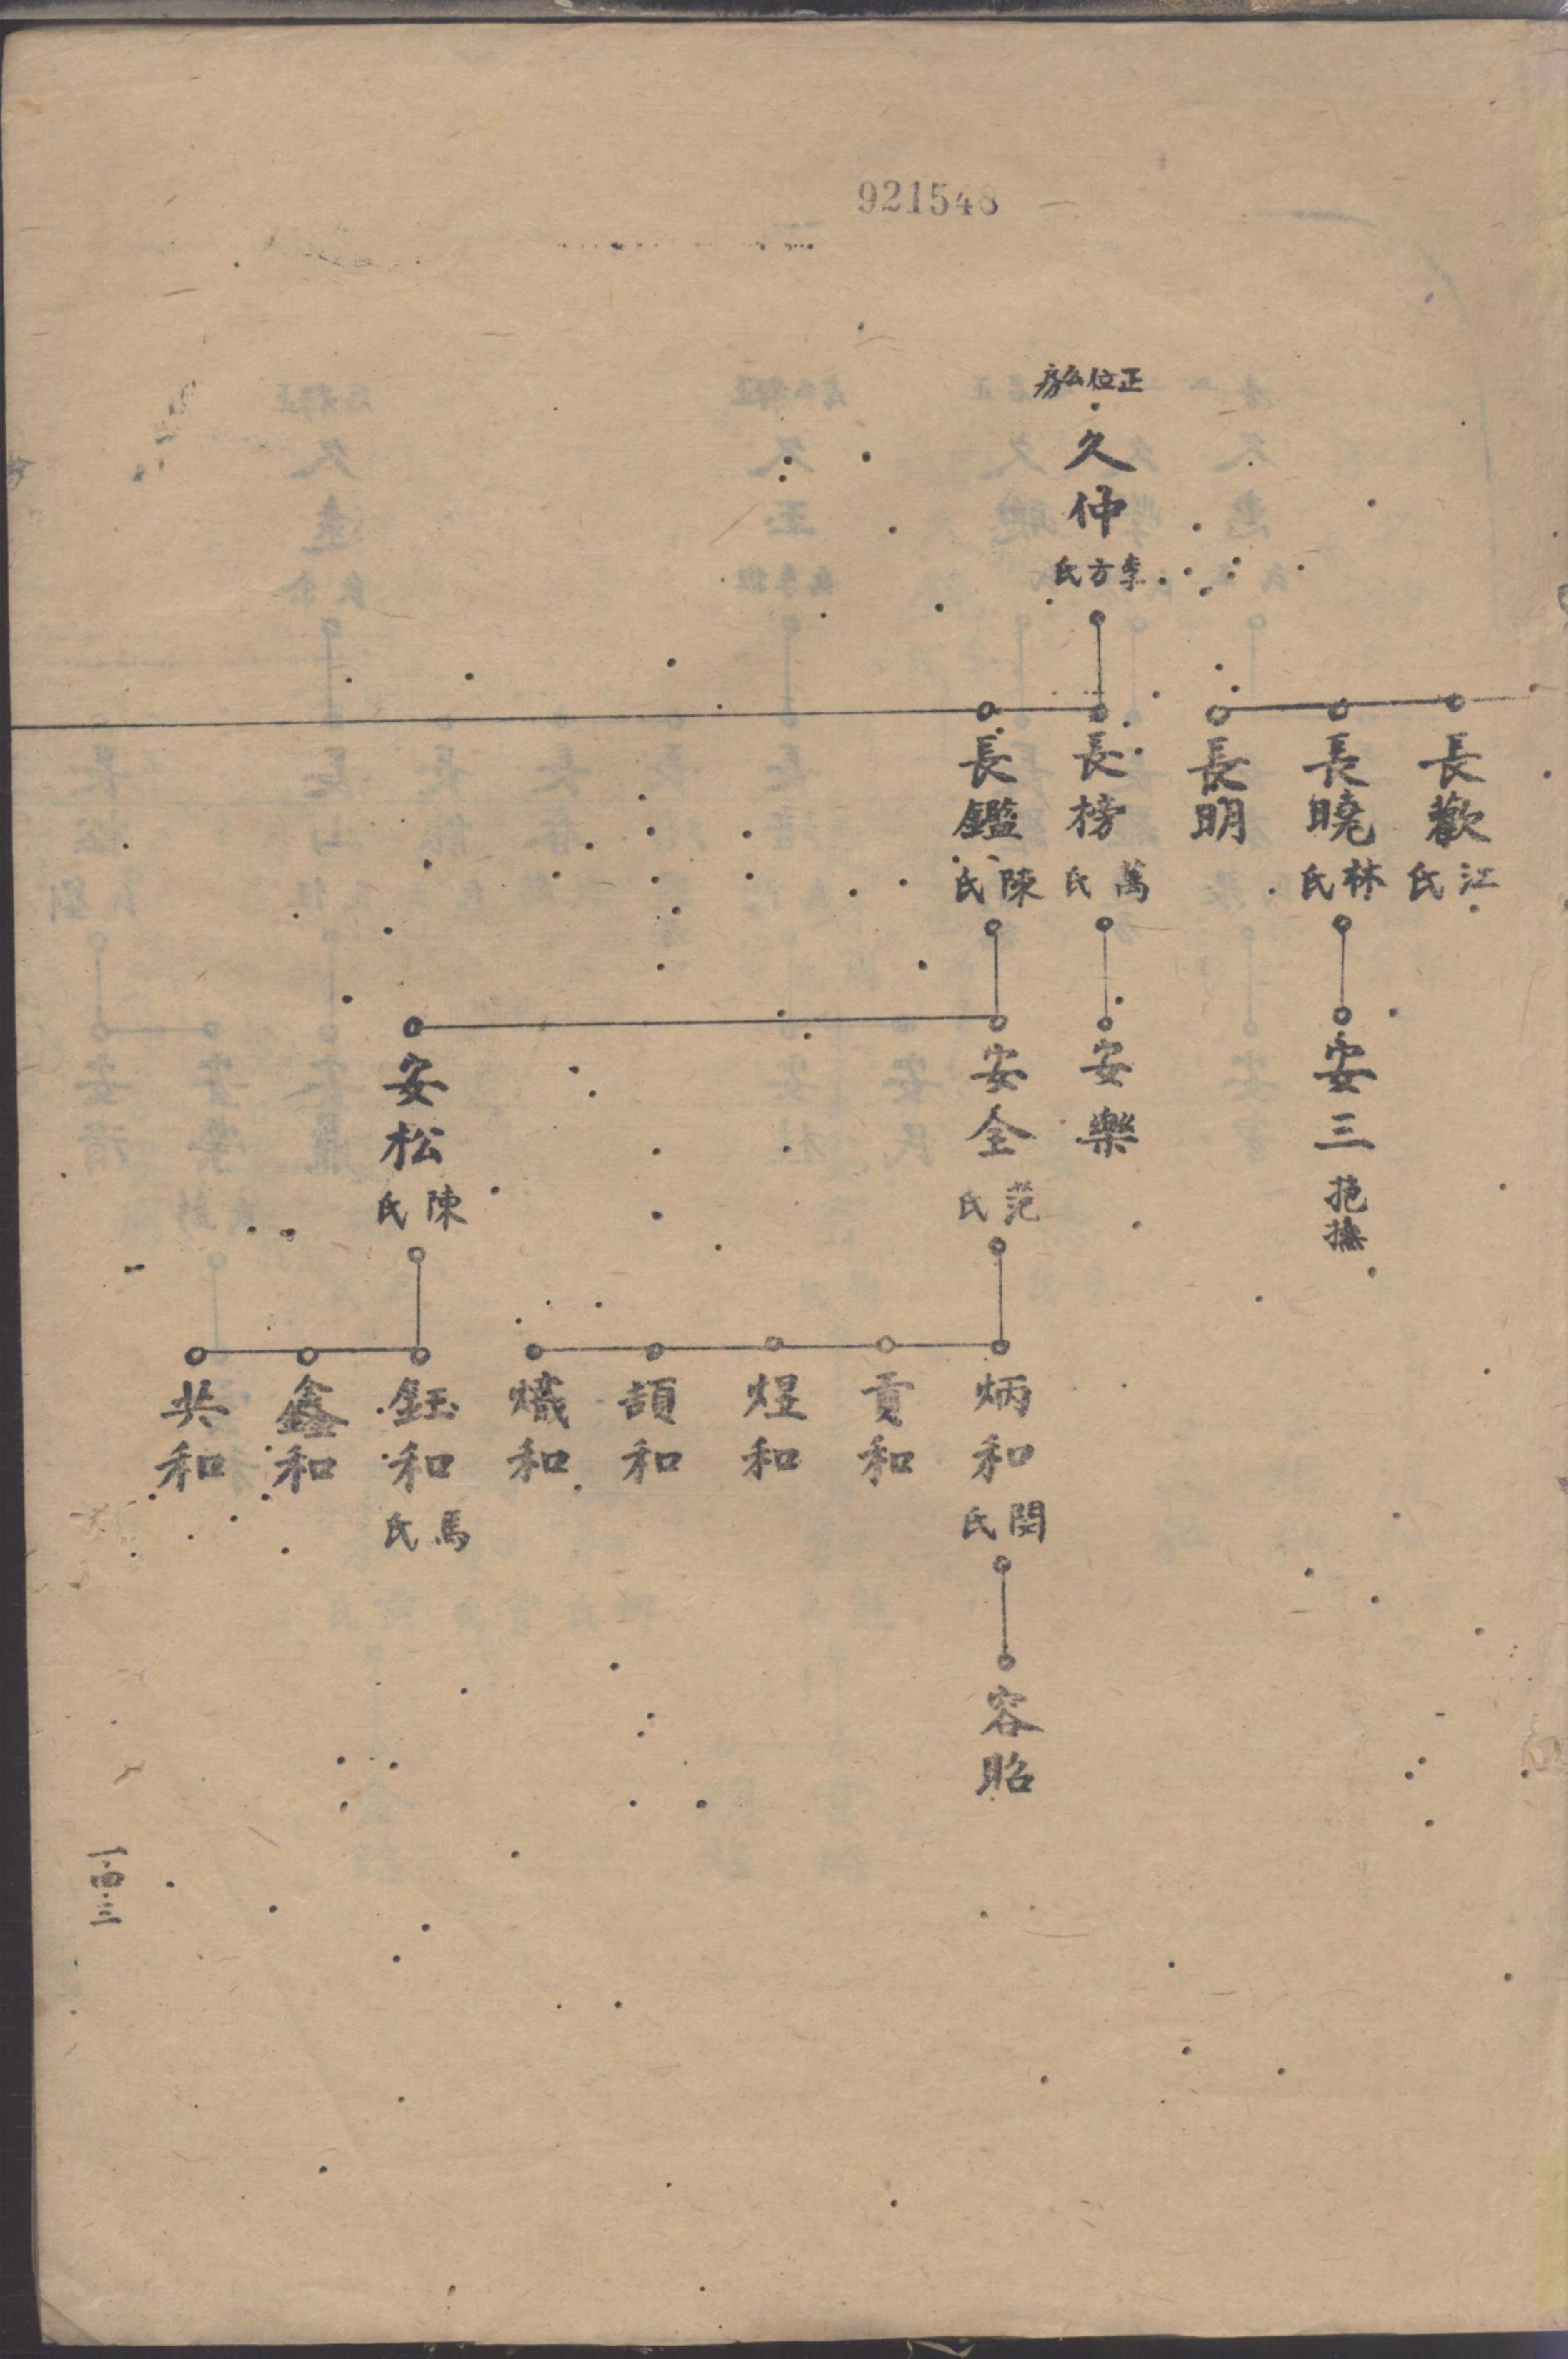 921548
正位公房
久仲
李方氏
長歡
江氏
長曉
林氏
長明
長榜
萬氏
長鑑
陳氏
安三
抱撫
安樂
安全
范氏
安松
陳氏
炳和
閔氏
貢和
煜和
頡和
熾和
鈺和
馬氏
鑫和
共和
容昭
一四三